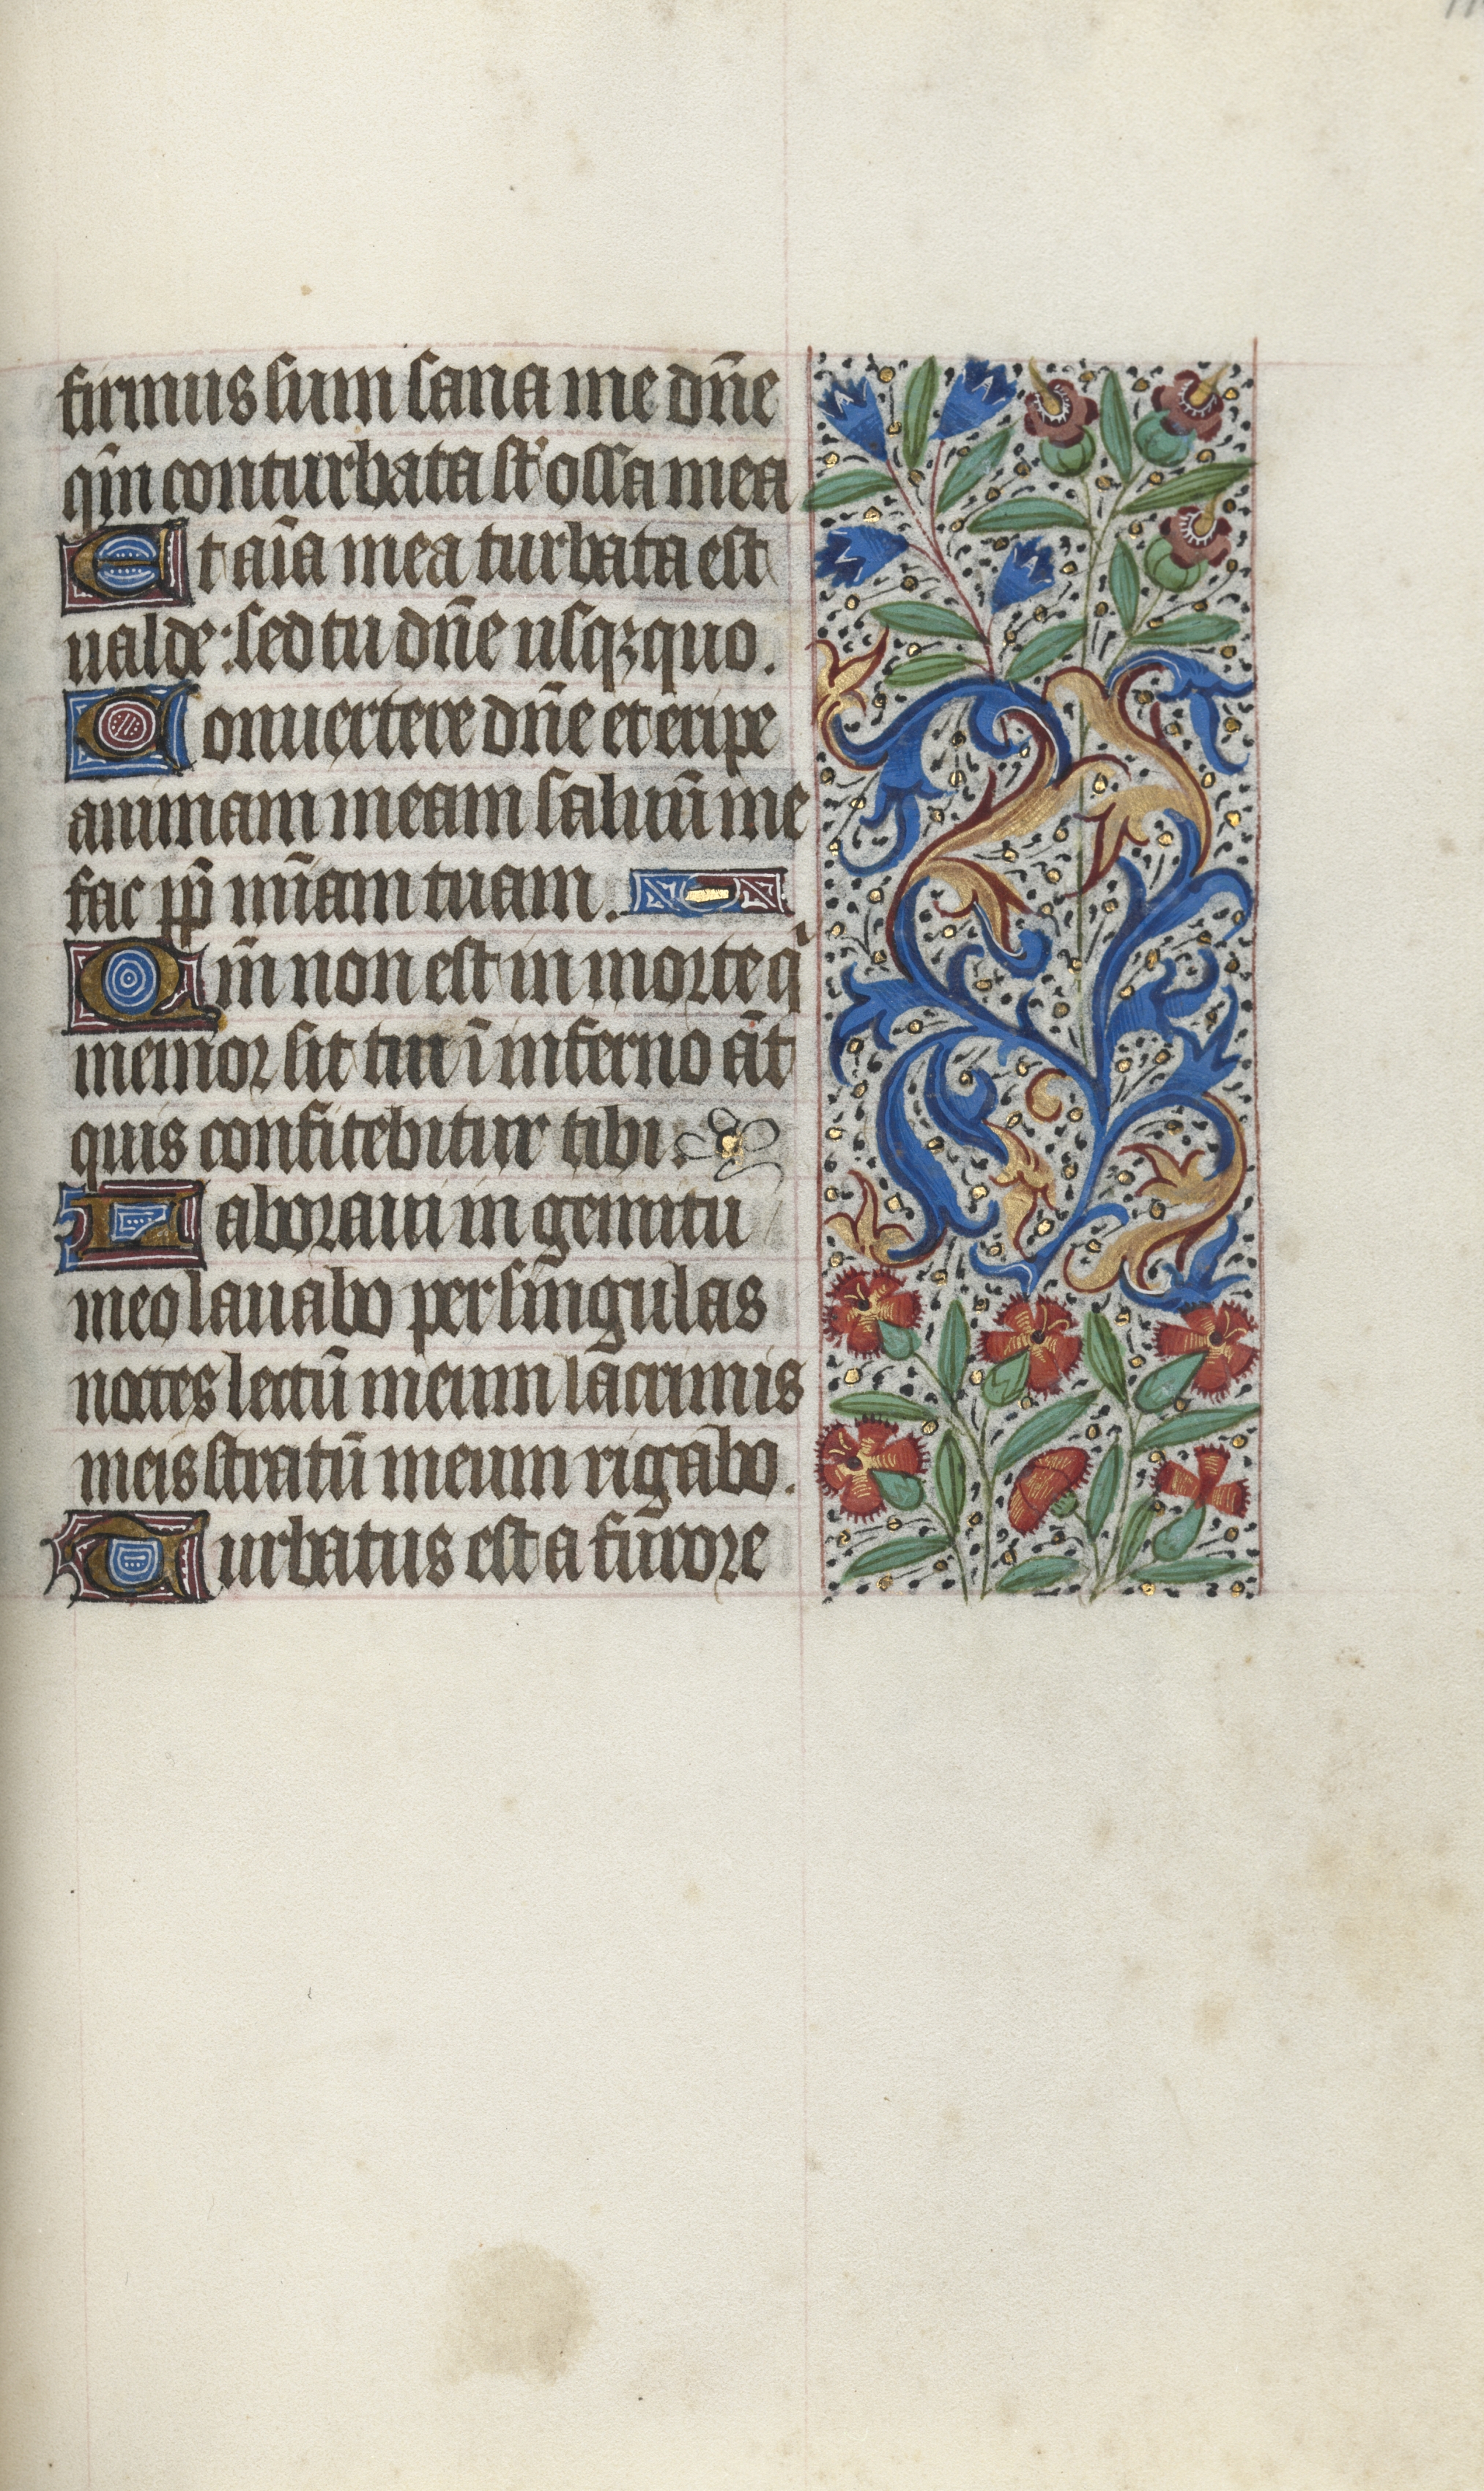 firmus sum sana me dn̄e
qm̄ conturbata st̄ ossa mea
Et aīa mea turbata est
ualde: sed tu dn̄e usqꝫ quo.
Conuertere dn̄e et eripe
animam meam saluū me
fac pp̄ mīam tuam.
Qm̄ non est in morte q̇
memor sit tui ī inferno āt
quis confitebitur tibi.
Laboraui in gemitu
meo lauabo per singulas
noctes lectū meum lacrimis
meis stratū meum rigabo.
Turbatus est a furore